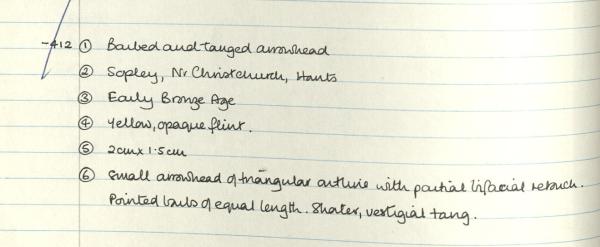 -412 ① Barbed and tanged arrowhead
② Sopley, Nr Christchurch, Hants
③ Early Bronze Age
④ Yellow, opaque flint.
⑤ 2cm x 1.5cm
⑥ Small arrowhead of triangular outline with partial bifacial retouch.
Pointed barbs of equal length. Shorter, vestigial tang.